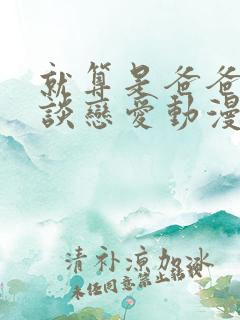 就算是爸爸
談戀愛動漫
清补凉加冰
未经同意禁止转载